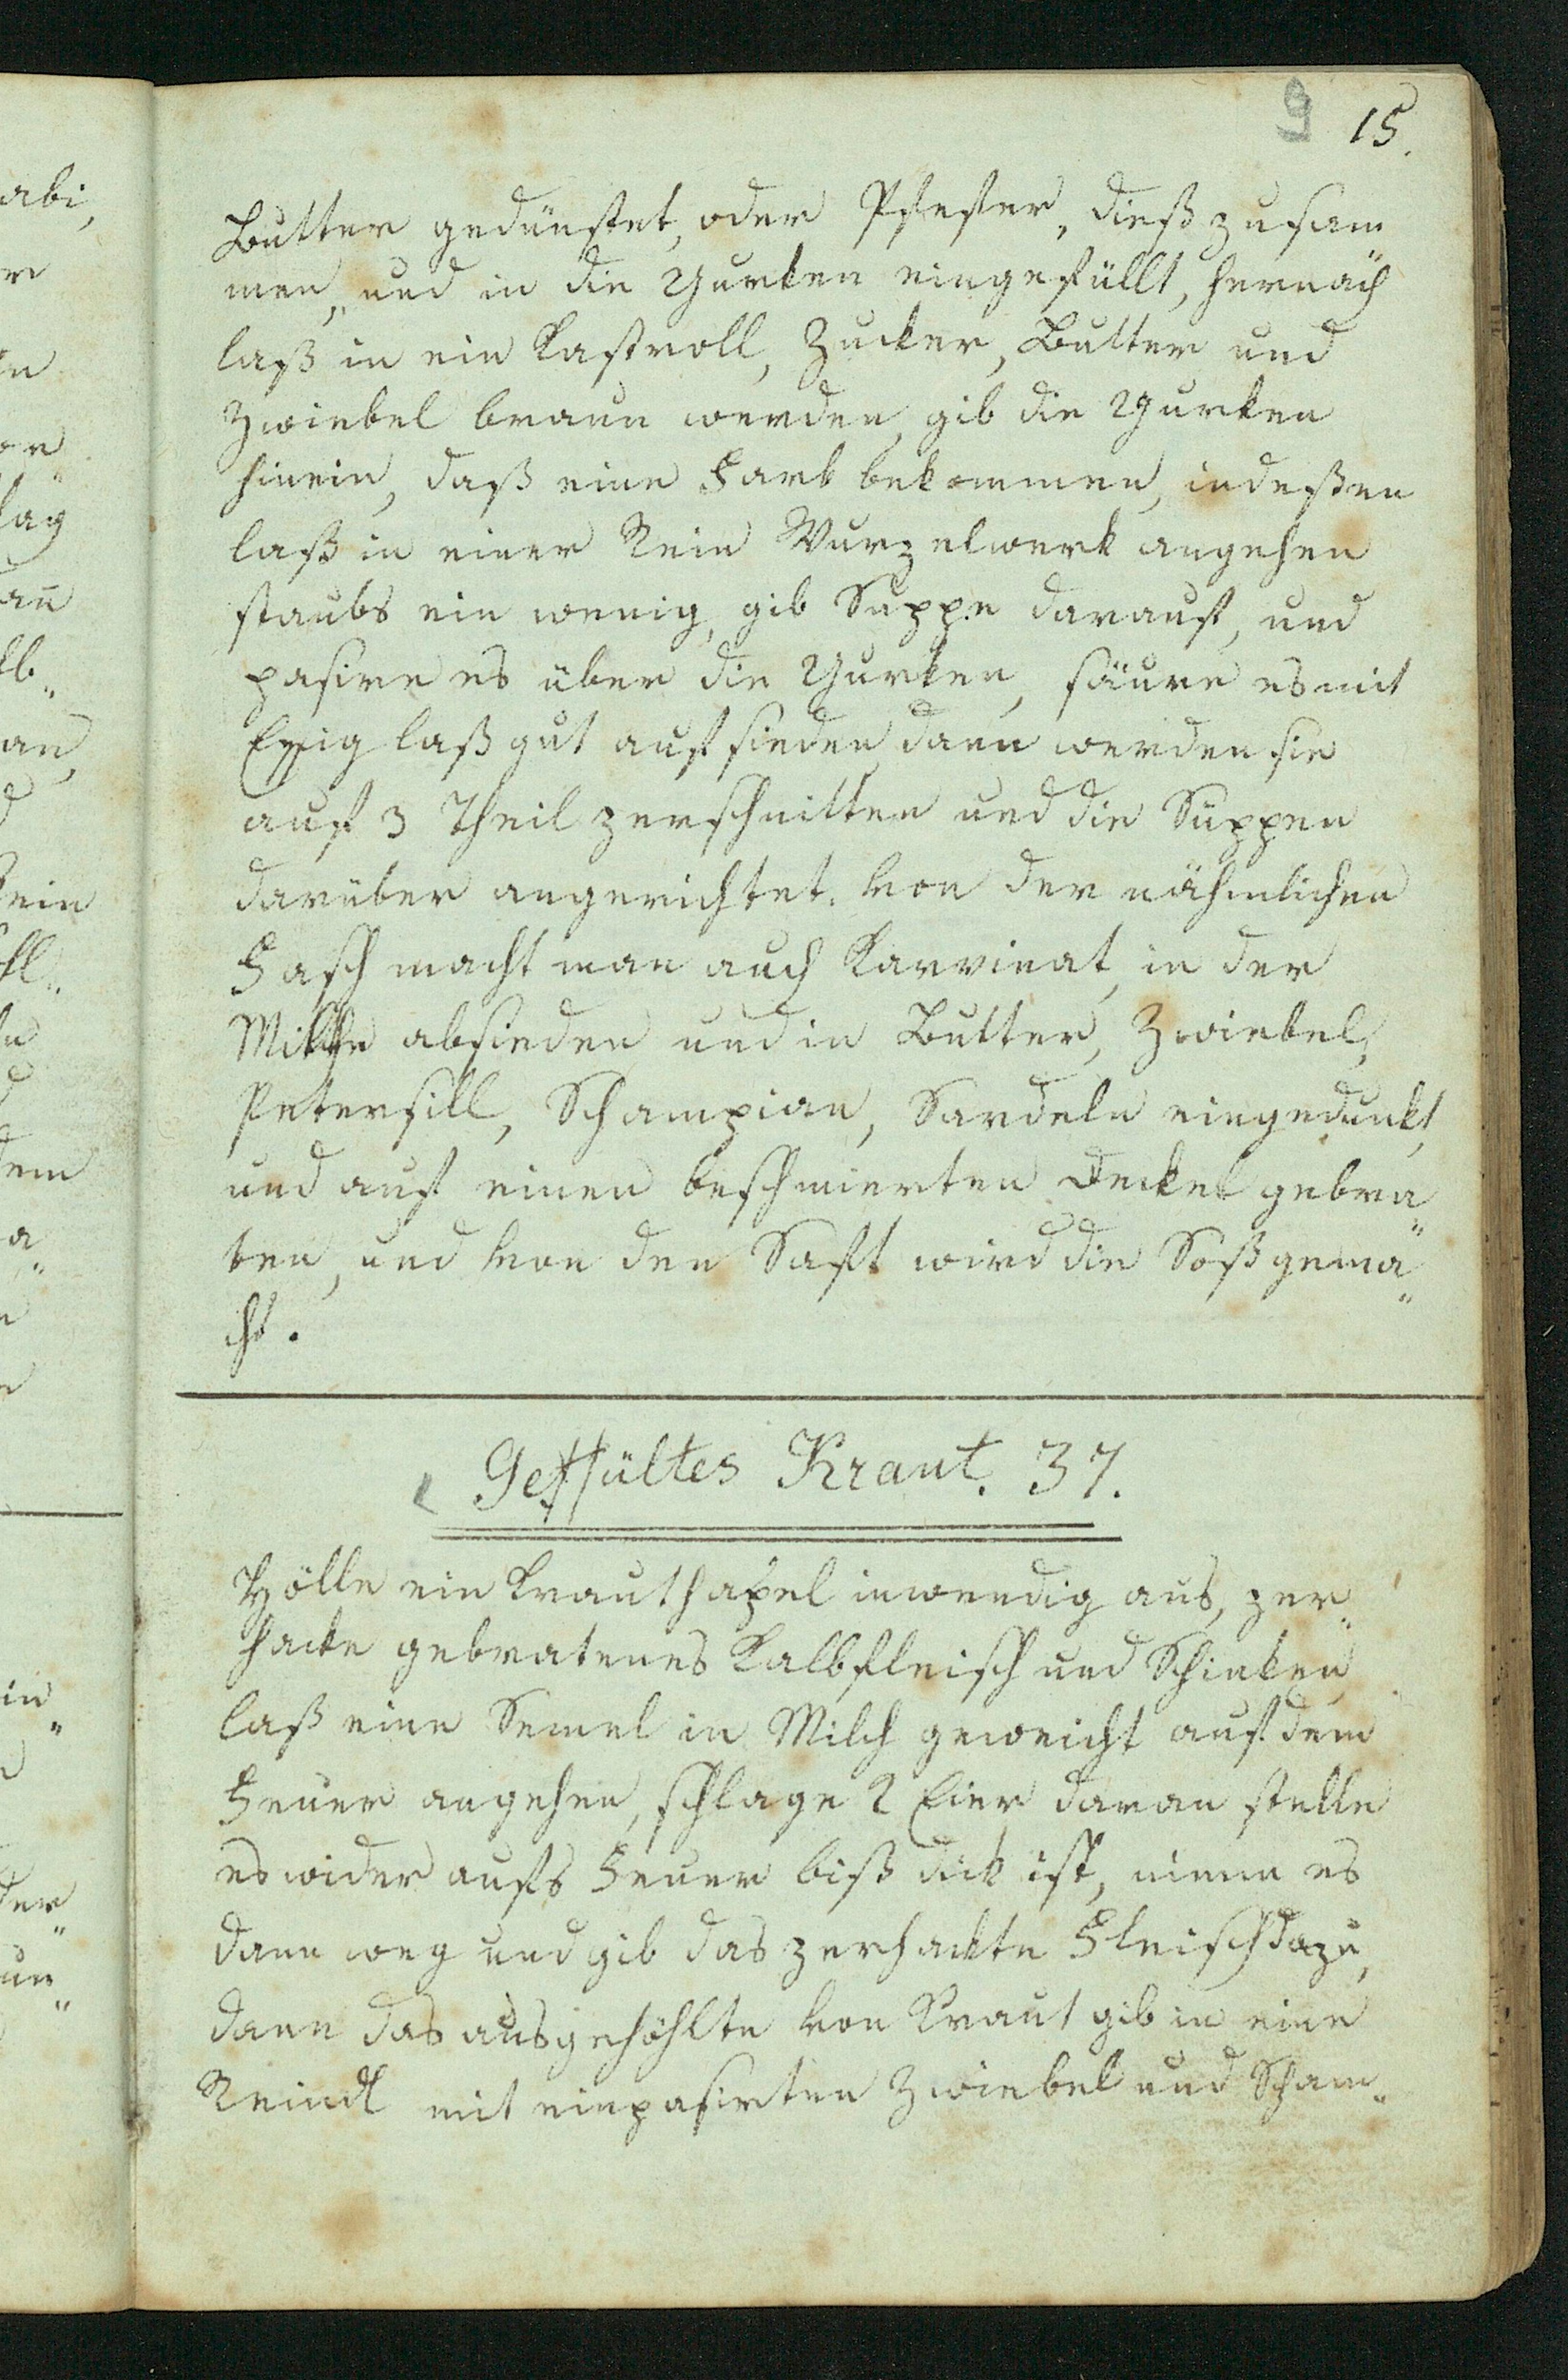 9 15.
Butter gedünstet, oder Pfeffer, dieß zusam
men, und in die Gurken eingefüllt, hernach
laß in ein Kastroll, Zucker, Butter und
Zwiebel braun werden, gib die Gurken
hinein, daß eine Farb bekommen, indeßen
laß in einer Rein Wurzelwerk angehen
staubs ein wenig, gib Suppe darauf, und
pasire es über die Gurken, säure es mit
Essig laß gut aufsieden, dann werden sie
auf 3 Theil zerschnitten und die Suppen
darüber angerichtet. Von der nähmlichen
Fasch macht man auch Karvinat, in der
absieden und in Butter, Zwiebel,
Petersill, Schampian, Sardeln eingedunkt,
und auf einen beschmierten Deckel gebra„
ten, und von den Saft wird die Soß gema„
cht.
Geffültes Kraut. 37.
Hölle ein Krauthapel inwendig aus, zer„
hacke gebratenes Kalbfleisch und Schinken,
laß eine Semel in Milch geweicht auf dem
Feuer angehen, schlage 2 Eier daran stelle
es wider aufs Feuer biß dick ist, nimm es
dann weg und gib das zerhackte Fleisch dazu,
dann das ausgehöhlte von Kraut gib in eine
Reindl mit einpasirten Zwiebel und Scham„